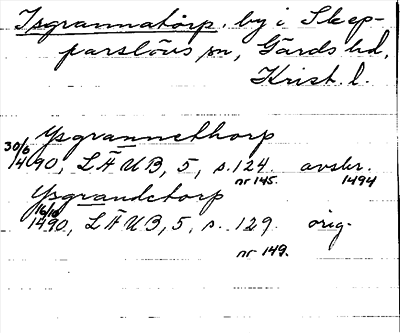 Isgrannatorp. by i Skep-
parslövs sn, Gärds hd,
Krist. l.
Ysgrannethorp
30/6 1490, LÄUB, 5, s. 124. avskr.
nr 145. 1494
Ysgrandetorp
16/10 1490, LÄUB, 5, s. 129. orig.
nr 149.